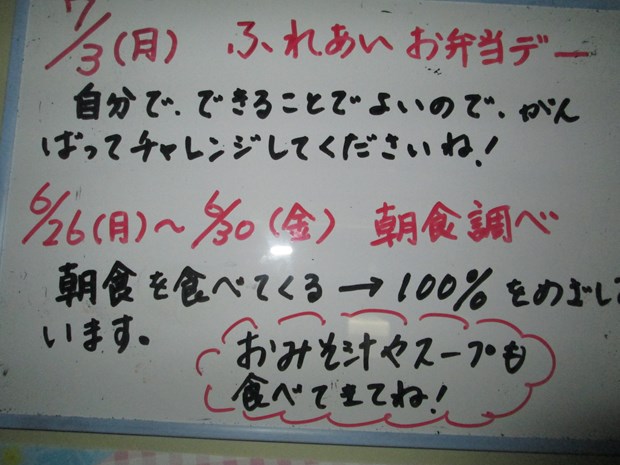 7/3(月) ふれあいお弁当デー
自分で、できることでよいので、がん
ばってチャレンジしてくださいね!
6/26(月)~6/30(金) 朝食調べ
朝食を食べてくる→100%をめざして
います。
おみそ汁やスープも
食べてきてね!